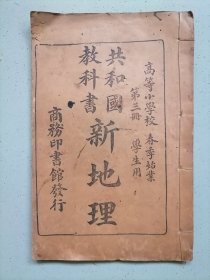 高等小學校 春季始業
第三冊 學生用
共和國
教科書
新地理
商務印書館發行